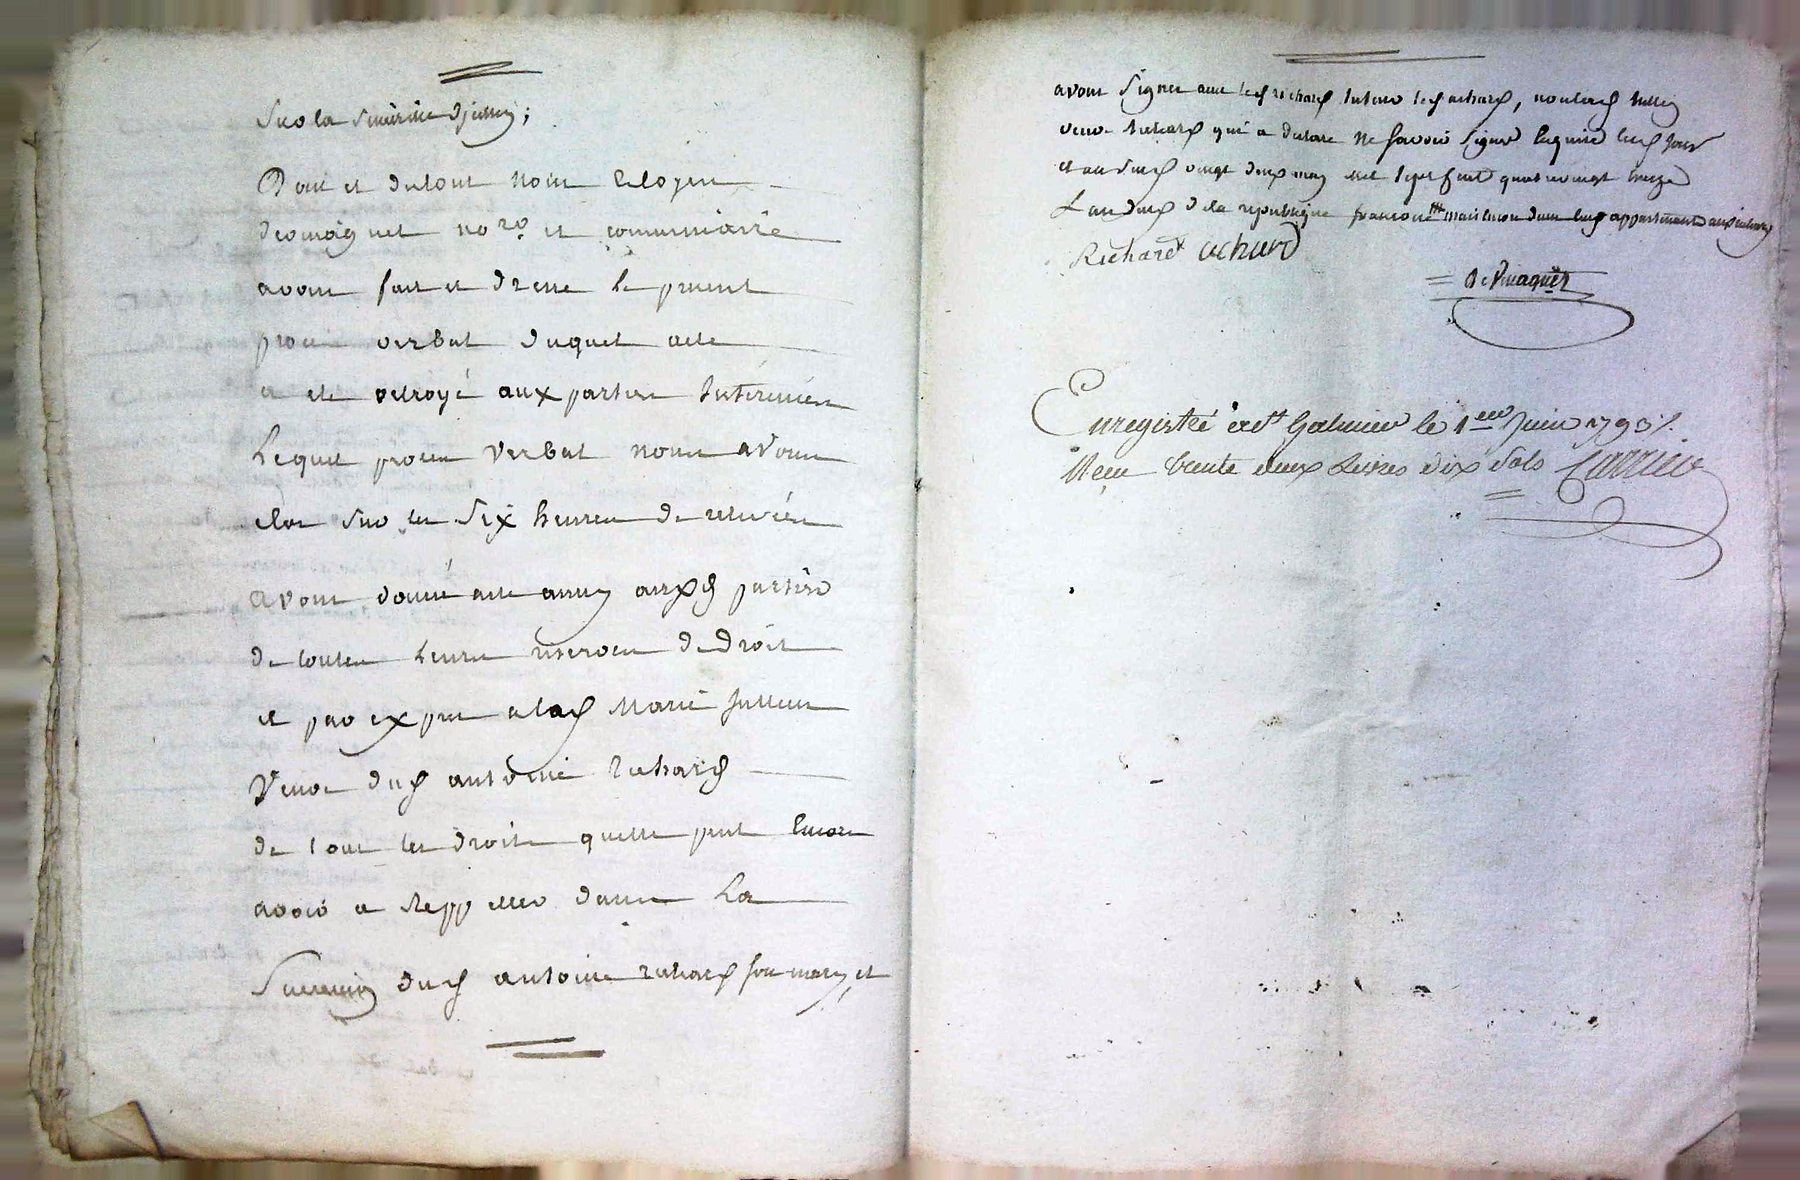 Sur la
Dont et dutout nous Citoyen
no.re et commissaire
avons fait et dressé le present
procès verbal duquel acte
a été octroyé aux parties Interessées
Lequel procès verbal nous avons
clos sur les six heures de relevée
avons donné acte aux d parties
de toutes Leurs reserves de droit
et par exprès a lad Marie Jullien
Veuve dud antoine richard
de tous les droits quelle peut Encore
avoir a Repetter dans La
Succession dud antoine richard son mary, et
avons signé avec led richard led achard, non lad
veuve richard qui a declaré ne savoir signer lesd jour
et an vingt deux may mil sept cent quatre vingt treize
Lan deux de la republique francoise
Richard achard
Enregistré à St Galmier le 1er Juin 1793 /.
Reçu trente deux Livres dix sols